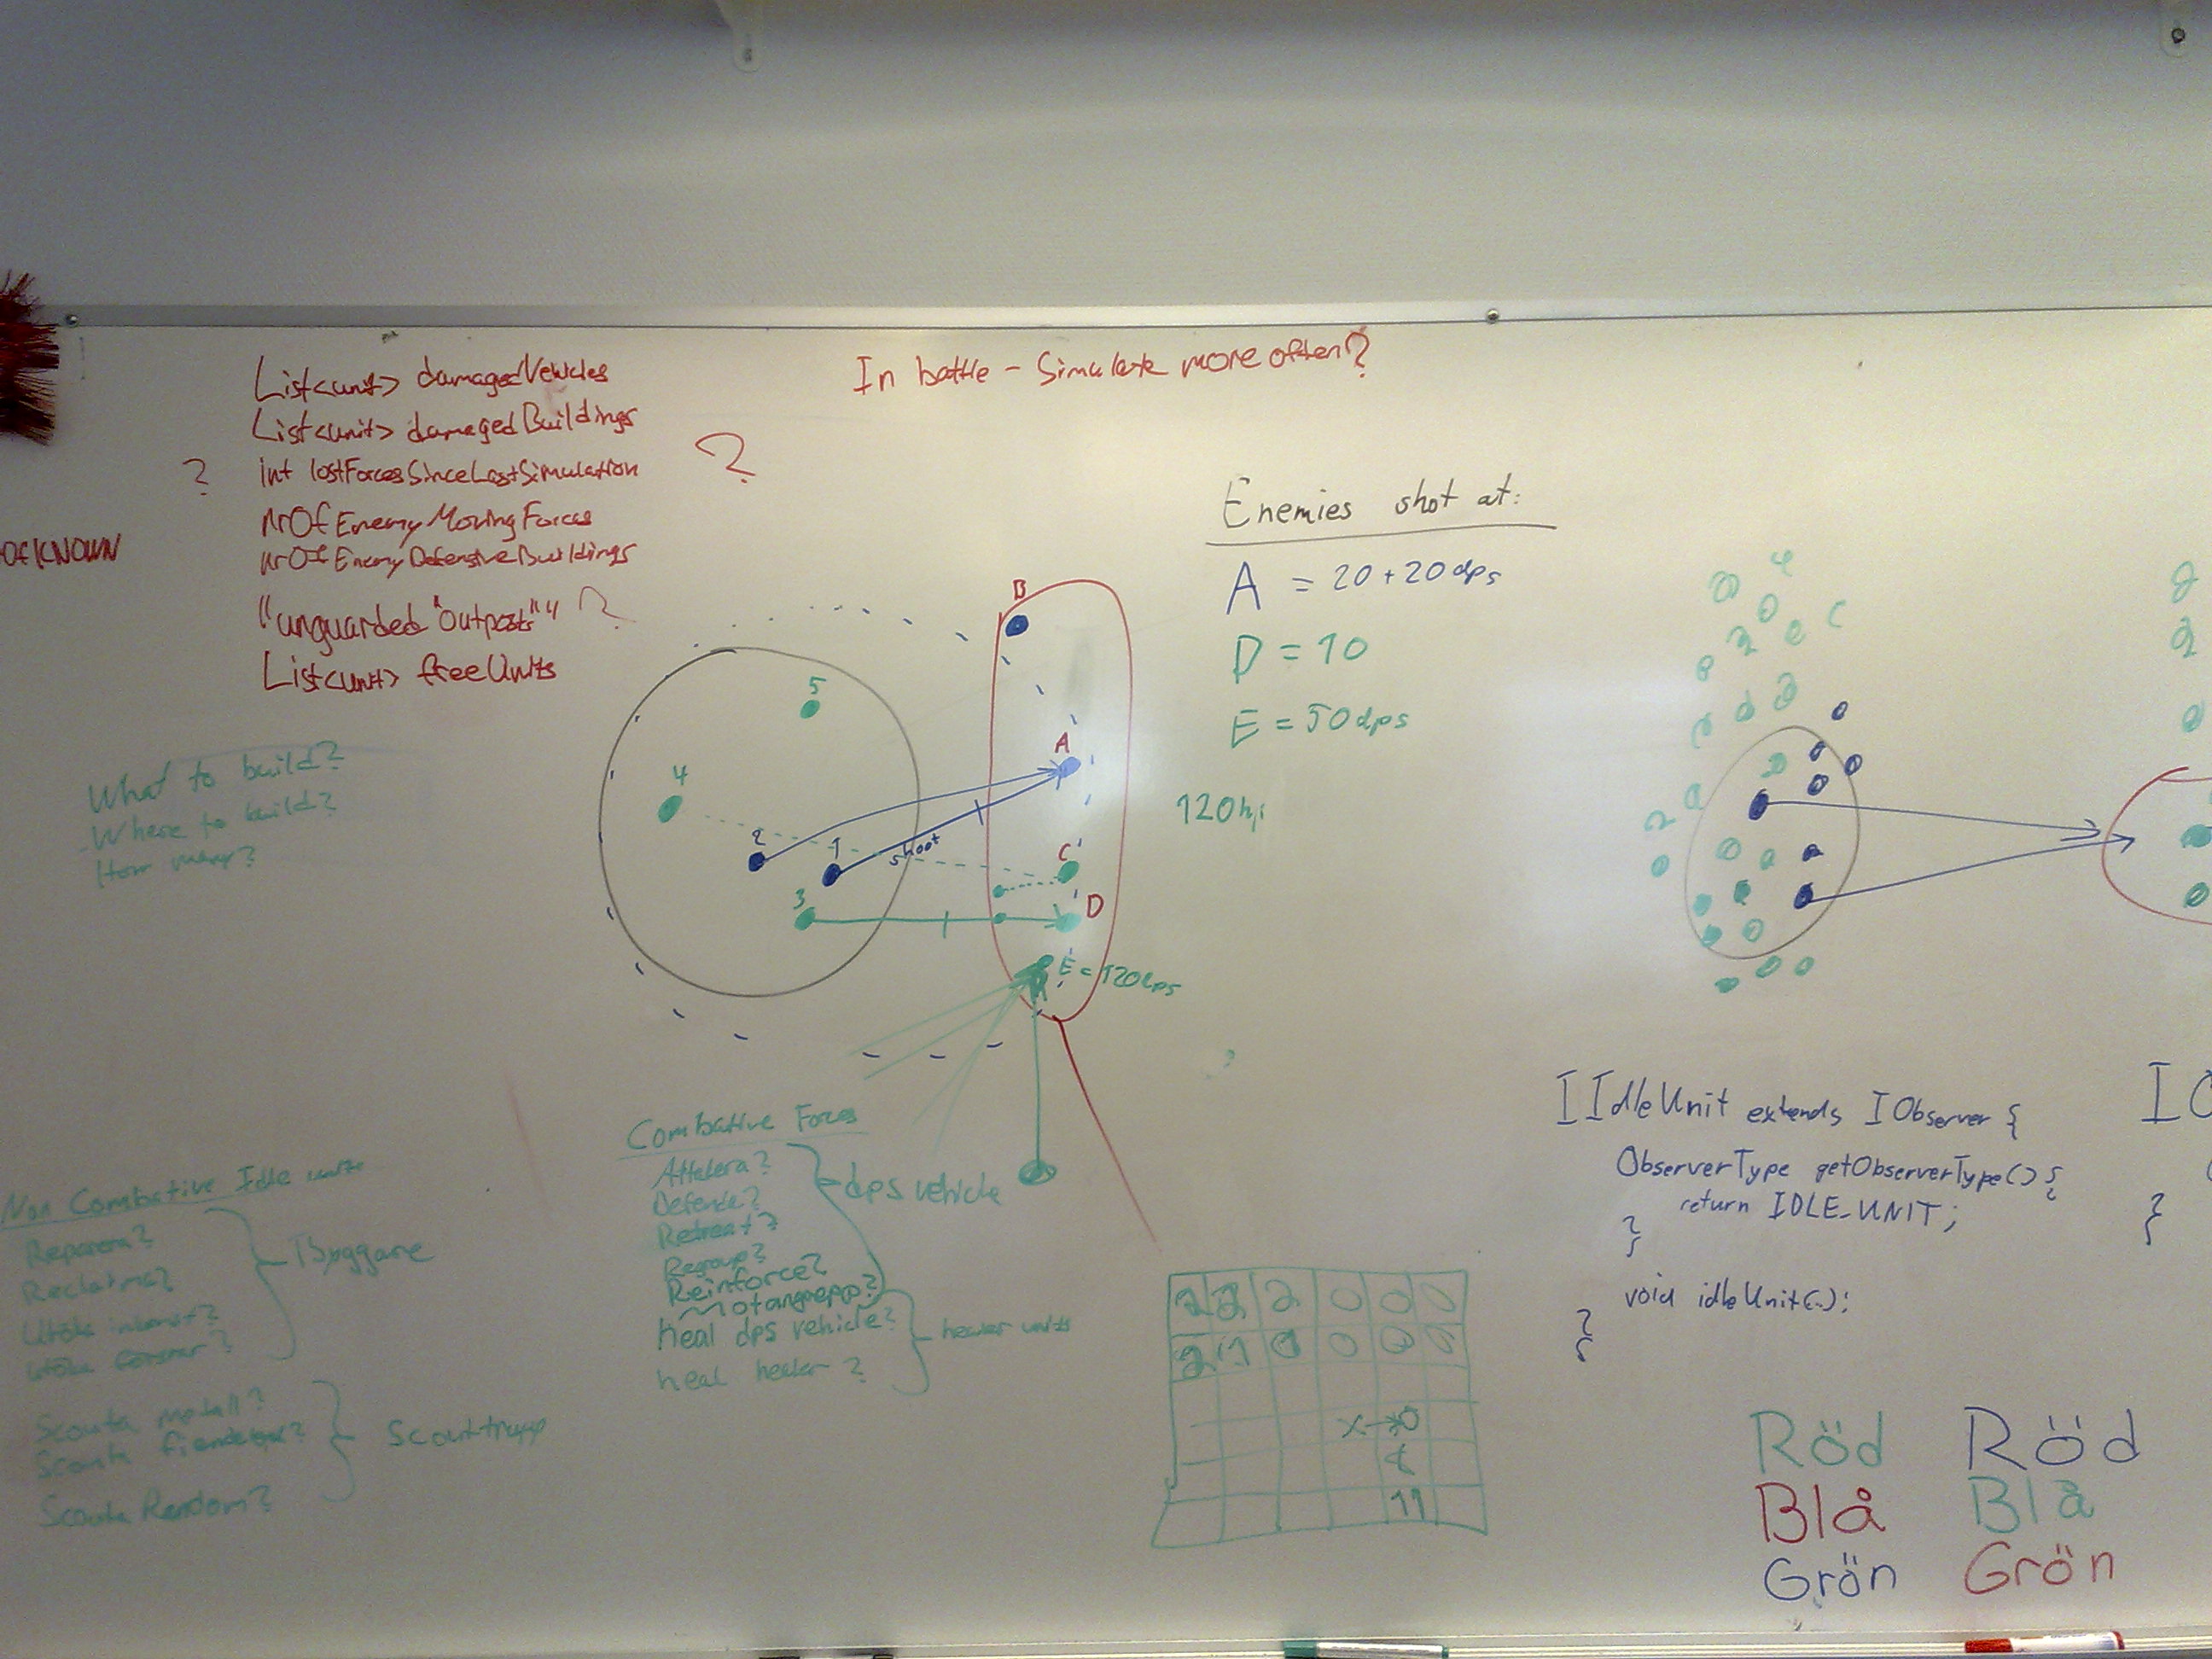 List<unit> damagedVehicles
List<unit> damagedBuildings
? int lostForcesSinceLastSimulation ?
nrOfEnemyMovingForces
nrOfEnemyDefensiveBuildings
"unguarded "outposts"" ?
List<unit> freeUnits
OfKNOWN
In battle - Simulate more often?
What to build?
Where to build?
How many?
Enemies shot at:
A = 20 + 20 dps
D = 10
E = 50 dps
120 hp
B
A
C
D
E = 120 dps
5
4
2
1
3
shoot
Non Combative Idle units
Reparera?
Reclaima?
Utöka inkomst?
Utöka försvar?
Byggare
Scouta metall?
Scouta
Scouta Random?
Scouttrupp
Combative Forces
Attackera?
Defende?
Retreat?
Regroup?
Reinforce?
Motangrepp?
dps vehicle
heal dps vehicle?
heal healer?
healer units
2 2 2 0 0 0
2 1 0 0 0 0
X→0
11
IIdleUnit extends IObserver {
ObserverType getObserverType() {
return IDLE_UNIT;
}
void idleUnit(..);
}
}
Röd Röd
Blå Blå
Grön Grön